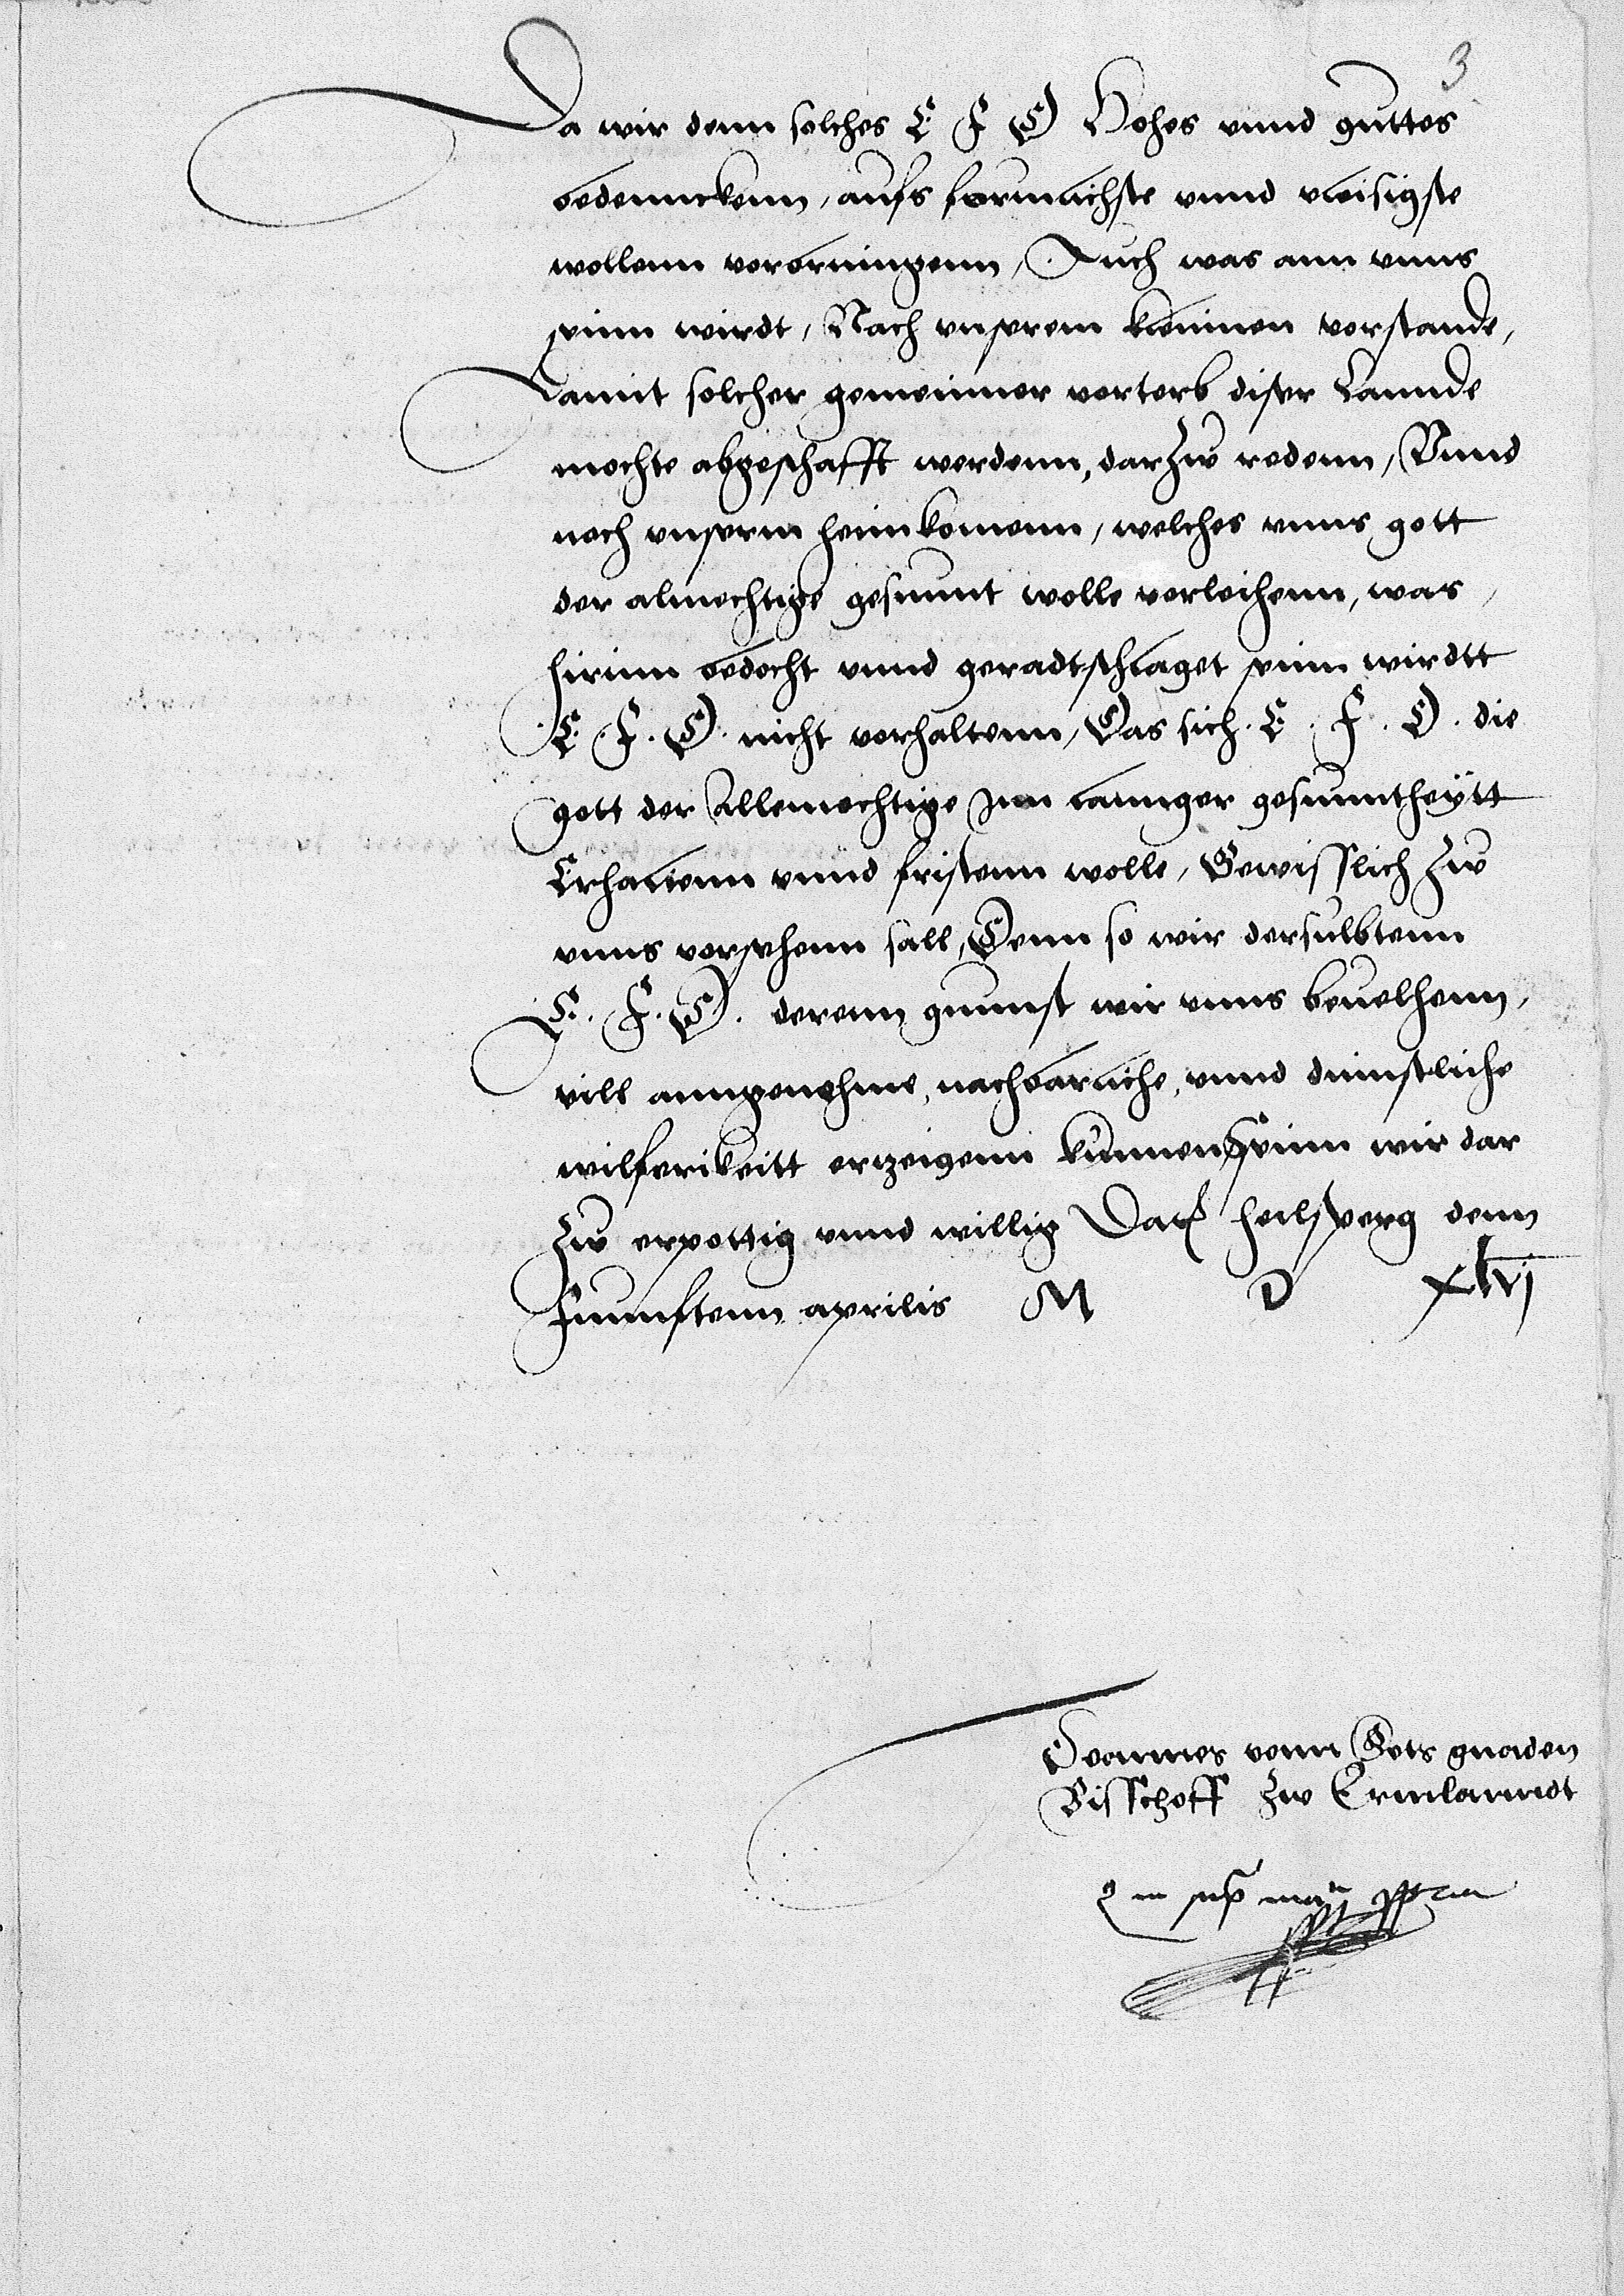 3
Da wir denn solches E F G Hohes vnnd guttes
bedennckenn, aufs formlichste vnnd vleisigste
wollenn vorbrinngenn, Auch was ann vnns
seinn wirdt, Nach vnserem kleinnen vorstande,
Damit solcher gemeinner vorterb diser Lannde
mochte abgeschafft werdenn, darzw redenn, Vnnd
noch vnserm heimkomenn, welches vnns gott
der almechtige gesunnt wolle vorleihenn, was
hirinn bedocht vnnd geradtschlaget seinn wirdtt
E. F. G. nicht vorhaltenn, Das sich. E. F. G. die
gott der Allemechtige Inn lannger gesunntheytt
Erhaltenn vnnd fristenn wolle, Gewisslich zw
vnns vorsehenn sall, Denn so wir derselbtenn
E. F. G. derenn gunnst wir vnns beuelhenn,
vill anngenehme, nachbarliche, vnnd dinnstliche
wilferikeitt erzeigenn kunnen, Seinn wir dar
zw erpottig vnnd willig Dat heilsperg denn
Funnftenn aprilis M D xlvj
Joannes vonn Gots gnaden
Bisschoff zw Ermlanndt